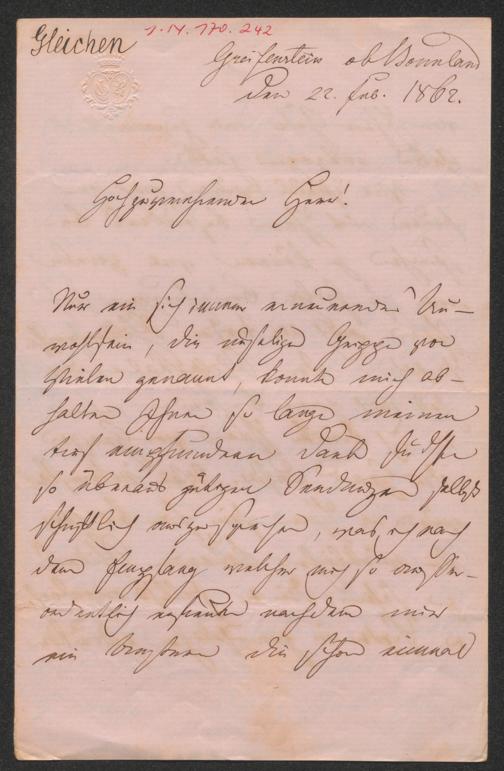 Gleichen
1.IV.170.242
Greifenstein ob Bonnland
den 22. Feb. 1862.
Hochzuverehrender Herr!
Nur ein sich immer erneuerndes Un-
wohlsein, die unselige Grippe von
Vielen genannt, konnte mich ab-
halten Ihnen so lange meinen
tief empfundenen Dank für Ihre
so überaus gütigen Sendungen selbst
schriftlich auszusprechen, was ich nach
dem Empfang welcher mich so ausser-
ordentlich erfreute nachdem mir
ein die schon einmal